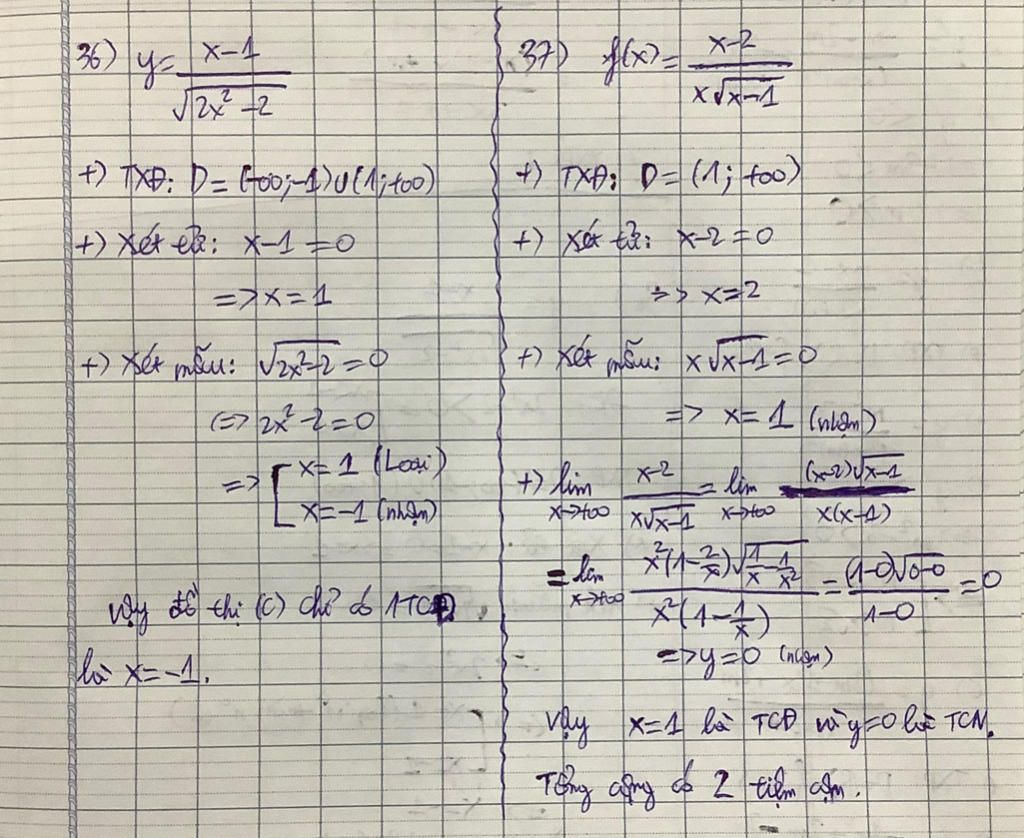 36) y = \frac{x-1}{\sqrt{2x^2-2}}
+) TXĐ: D = (-∞;-1)∪(1;+∞)
+) Xét tử: x-1 = 0
=> x = 1
+) Xét mẫu: \sqrt{2x^2-2} = 0
(=> 2x^2-2 = 0
=> [ x = 1 (Loại)
x = -1 (nhận)
Vậy đồ thị (C) chỉ có 1 TCĐ
là x = -1.
37) f(x) = \frac{x-2}{x\sqrt{x-1}}
+) TXĐ: D = (1; +∞)
+) Xét tử: x-2 = 0
=> x = 2
+) Xét mẫu: x\sqrt{x-1} = 0
=> x = 1 (nhận)
+) lim_{x→+∞} \frac{x-2}{x\sqrt{x-1}} = lim_{x→+∞} \frac{(x-2)\sqrt{x-1}}{x(x-1)}
= lim_{x→+∞} \frac{x^2(1-\frac{2}{x})\sqrt{\frac{1}{x}-\frac{1}{x^2}}}{x^2(1-\frac{1}{x})} = \frac{(1-0)\sqrt{0-0}}{1-0} = 0
=> y = 0 (nhận)
Vậy x = 1 là TCĐ và y = 0 là TCN.
Tổng cộng có 2 tiệm cận.